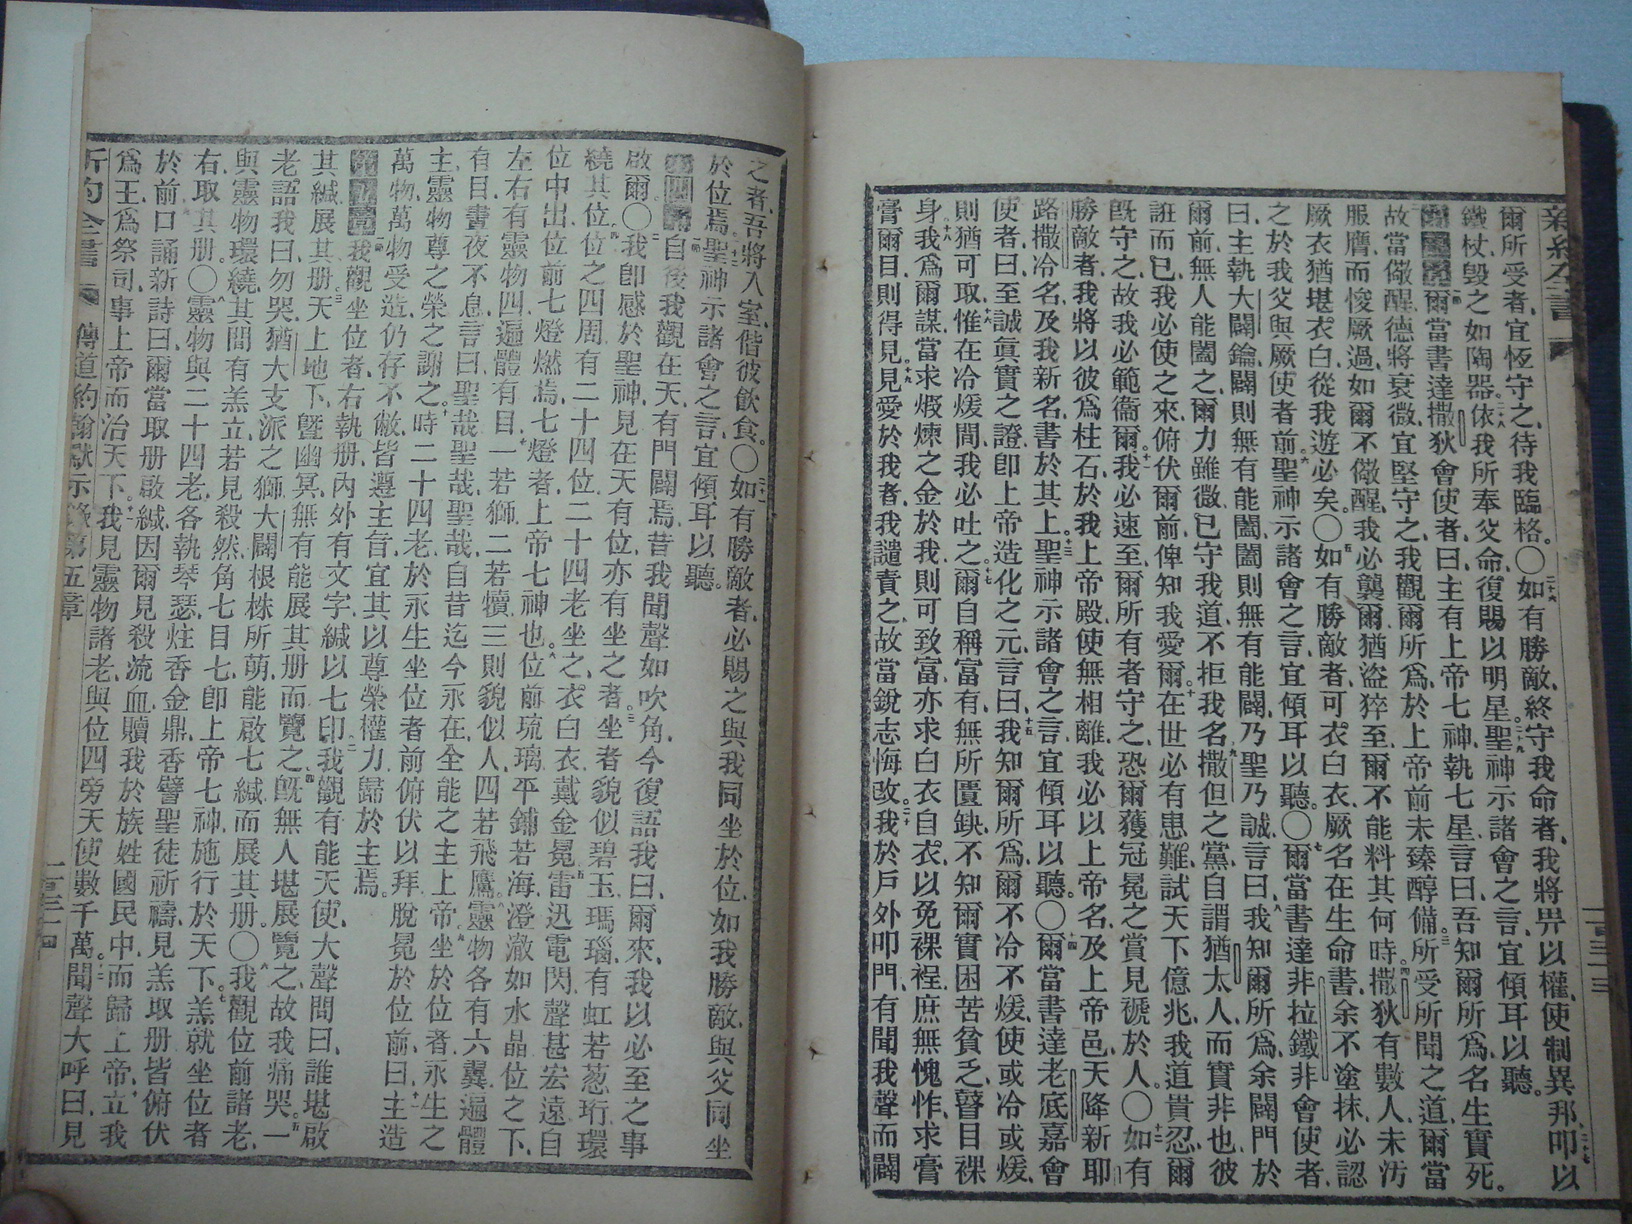 新約全書
一百三十三
爾所受者、宜恆守之、待我臨格。〇二十六如有勝敵、終守我命者、我將畀以權、使制異邦、二十七叩以
鐵杖、毀之如陶器、二十八依我所奉父命、復賜以明星。二十九聖神示諸會之言、宜傾耳以聽。
爾當書達撒狄會使者曰、主有上帝七神、執七星、言曰、吾知爾所爲、名生實死。
故當儆醒、德將衰微、宜堅守之、我觀爾所爲、於上帝前未臻醇備。三所受所聞之道、爾當
服膺、而悛厥過、如爾不儆醒、我必襲爾、猶盜猝至、爾不能料其何時。四撒狄有數人、未汚
厥衣、猶堪衣白、從我遊必矣。〇五如有勝敵者、可衣白衣、厥名在生命書、余不塗抹、必認
之於我父、與厥使者前。六聖神示諸會之言、宜傾耳以聽。〇七爾當書達非拉鐵非會使者、
曰、主執大闢鑰、闢則無有能闔、闔則無有能闢、乃聖乃誠、言曰、八我知爾所爲、余闢門於
爾前、無人能闔之、爾力雖微、已守我道、不拒我名。九撒但之黨、自謂猶太人、而實非也、彼
誑而已、我必使之來、俯伏爾前、俾知我愛爾。十在世必有患難、試天下億兆、我道貴忍、爾
旣守之、故我必範衞爾。十一我必速至、爾所有者守之、恐爾獲冠冕之賞、見褫於人。〇十二如有
勝敵者、我將以彼爲柱石、於我上帝殿、使無相離、我必以上帝名、及上帝邑、天降新耶
路撒冷名、及我新名、書於其上。十三聖神示諸會之言、宜傾耳以聽。〇十四爾當書達老底嘉會
使者曰、至誠眞實之證、卽上帝造化之元、言曰、十五我知爾所爲、爾不冷不煖、使或冷或煖、
則猶可取、十六惟在冷煖間、我必吐之。十七爾自稱富有、無所匱缺、不知爾實困苦貧乏、瞽目裸
身。十八我爲爾謀、當求煆煉之金於我、則可致富、亦求白衣自衣、以免裸裎、庶無愧怍、求膏
膏爾目、則得見。十九見愛於我者、我譴責之、故當銳志悔改。二十我於戶外叩門、有聞我聲而闢
之者、吾將入室、偕彼飲食。〇如有勝敵者、必賜之與我同坐於位、如我勝敵、與父同坐
於位焉。聖神示諸會之言、宜傾耳以聽。
第四章 自後我觀在天有門闢焉、昔我聞聲如吹角、今復語我曰、爾來、我以必至之事
啟爾。〇二我卽感於聖神、見在天有位、亦有坐之者。三坐者貌似碧玉瑪瑙、有虹若葱珩環
繞其位。四位之四周有二十四位、二十四老坐之、衣白衣、戴金冕。五雷迅電閃、聲甚宏遠、自
位中出、位前七燈燃焉、七燈者、上帝七神也。六位前琉璃平鋪若海、澄澈如水晶、位之下、
左右有靈物四、遍體有目、七一若獅、二若犢、三則貌似人、四若飛鷹。八靈物各有六翼、遍體
有目、晝夜不息、言曰、聖哉聖哉聖哉、自昔迄今永在、全能之主上帝。九坐於位者、永生之
主、靈物尊之榮之謝之。十時二十四老、於永生坐位者前、俯伏以拜、脫冕於位前曰、十一主造
萬物、萬物受造、仍存不敝、皆遵主旨、宜其以尊榮權力歸於主焉。
第五章 我觀坐位者右執册、內外有文字、緘以七印。二我觀有能天使、大聲問曰、誰堪啟
其緘、展其册。三天上地下、曁幽冥、無有能展其册而覽之。四旣無人堪展覽之、故我痛哭。五一
老語我曰、勿哭、猶大支派之獅、大闢根株所萌、能啟七緘、而展其册。〇六我觀位前諸老、
與靈物環繞、其間有羔立、若見殺然、角七目七、卽上帝七神、施行於天下。七羔就坐位者
右、取其册。〇八靈物與二十四老、各執琴瑟、炷香金鼎、香譬聖徒祈禱、見羔取册、皆俯伏
於前、九口誦新詩曰、爾當取册啟緘、因爾見殺流血、贖我於族姓國民中、而歸上帝、十立我
爲王、爲祭司、事上帝而治天下。十一我見靈物諸老、與位四旁天使、數千萬。十二聞聲大呼曰、見
新約全書
傳道約翰默示錄第五章
一百三十四